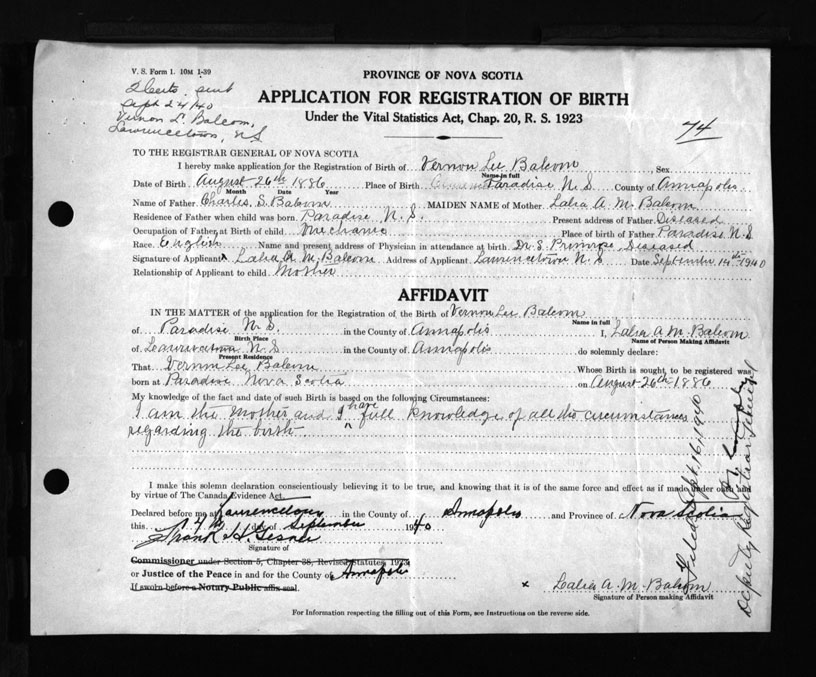 V. S. Form 1. 10M 1-39
2 Certs. sent
Sept 24/40
Vernon L. Balcom,
Lawrencetown, N S
PROVINCE OF NOVA SCOTIA
APPLICATION FOR REGISTRATION OF BIRTH
Under the Vital Statistics Act, Chap. 20, R. S. 1923
74
TO THE REGISTRAR GENERAL OF NOVA SCOTIA
I hereby make application for the Registration of Birth of Vernon Lee Balcom Sex
Name in full
Date of Birth August 26th 1886 Place of Birth Paradise N. S. County of Annapolis
Month Date Year
Name of Father Charles S. Balcom MAIDEN NAME of Mother Lalia A. M. Balcom
Residence of Father when child was born Paradise N. S. Present address of Father Diseased
Occupation of Father at Birth of child Mechanic Place of birth of Father Paradise N. S
Race English Name and present address of Physician in attendance at birth Dr. S. Primrose Diseased
Signature of Applicant x Lalia A. M. Balcom Address of Applicant Lawrencetown N. S Date September 14th 1940
Relationship of Applicant to child Mother
AFFIDAVIT
IN THE MATTER of the application for the Registration of the Birth of Vernon Lee Balcom
Name in full
of Paradise N. S. in the County of Annapolis I, Lalia A M Balcom
Birth Place Name of Person Making Affidavit
of Lawrencetown N. S in the County of Annapolis do solemnly declare:
Present Residence
That Vernon Lee Balcom Whose Birth is sought to be registered was
born at Paradise Nova Scotia on August 26th 1886
My knowledge of the fact and date of such Birth is based on the following Circumstances:
I am the Mother and I have full knowledge of all the circumstances
regarding the birth
I make this solemn declaration conscientiously believing it to be true, and knowing that it is of the same force and effect as if made under oath and
by virtue of The Canada Evidence Act.
Declared before me at Lawrencetown in the County of Annapolis and Province of Nova Scotia
this 14th day of September 1940
Frank H. Gesner
Signature of
Commissioner under Section 5, Chapter 38, Revised Statutes, 1923
or Justice of the Peace in and for the County of Annapolis
If sworn before a Notary Public affix seal.
x Lalia A. M. Balcom
Signature of Person making Affidavit
For Information respecting the filling out of this Form, see Instructions on the reverse side.
Filed Sept. 16, 1940
Deputy Registrar General